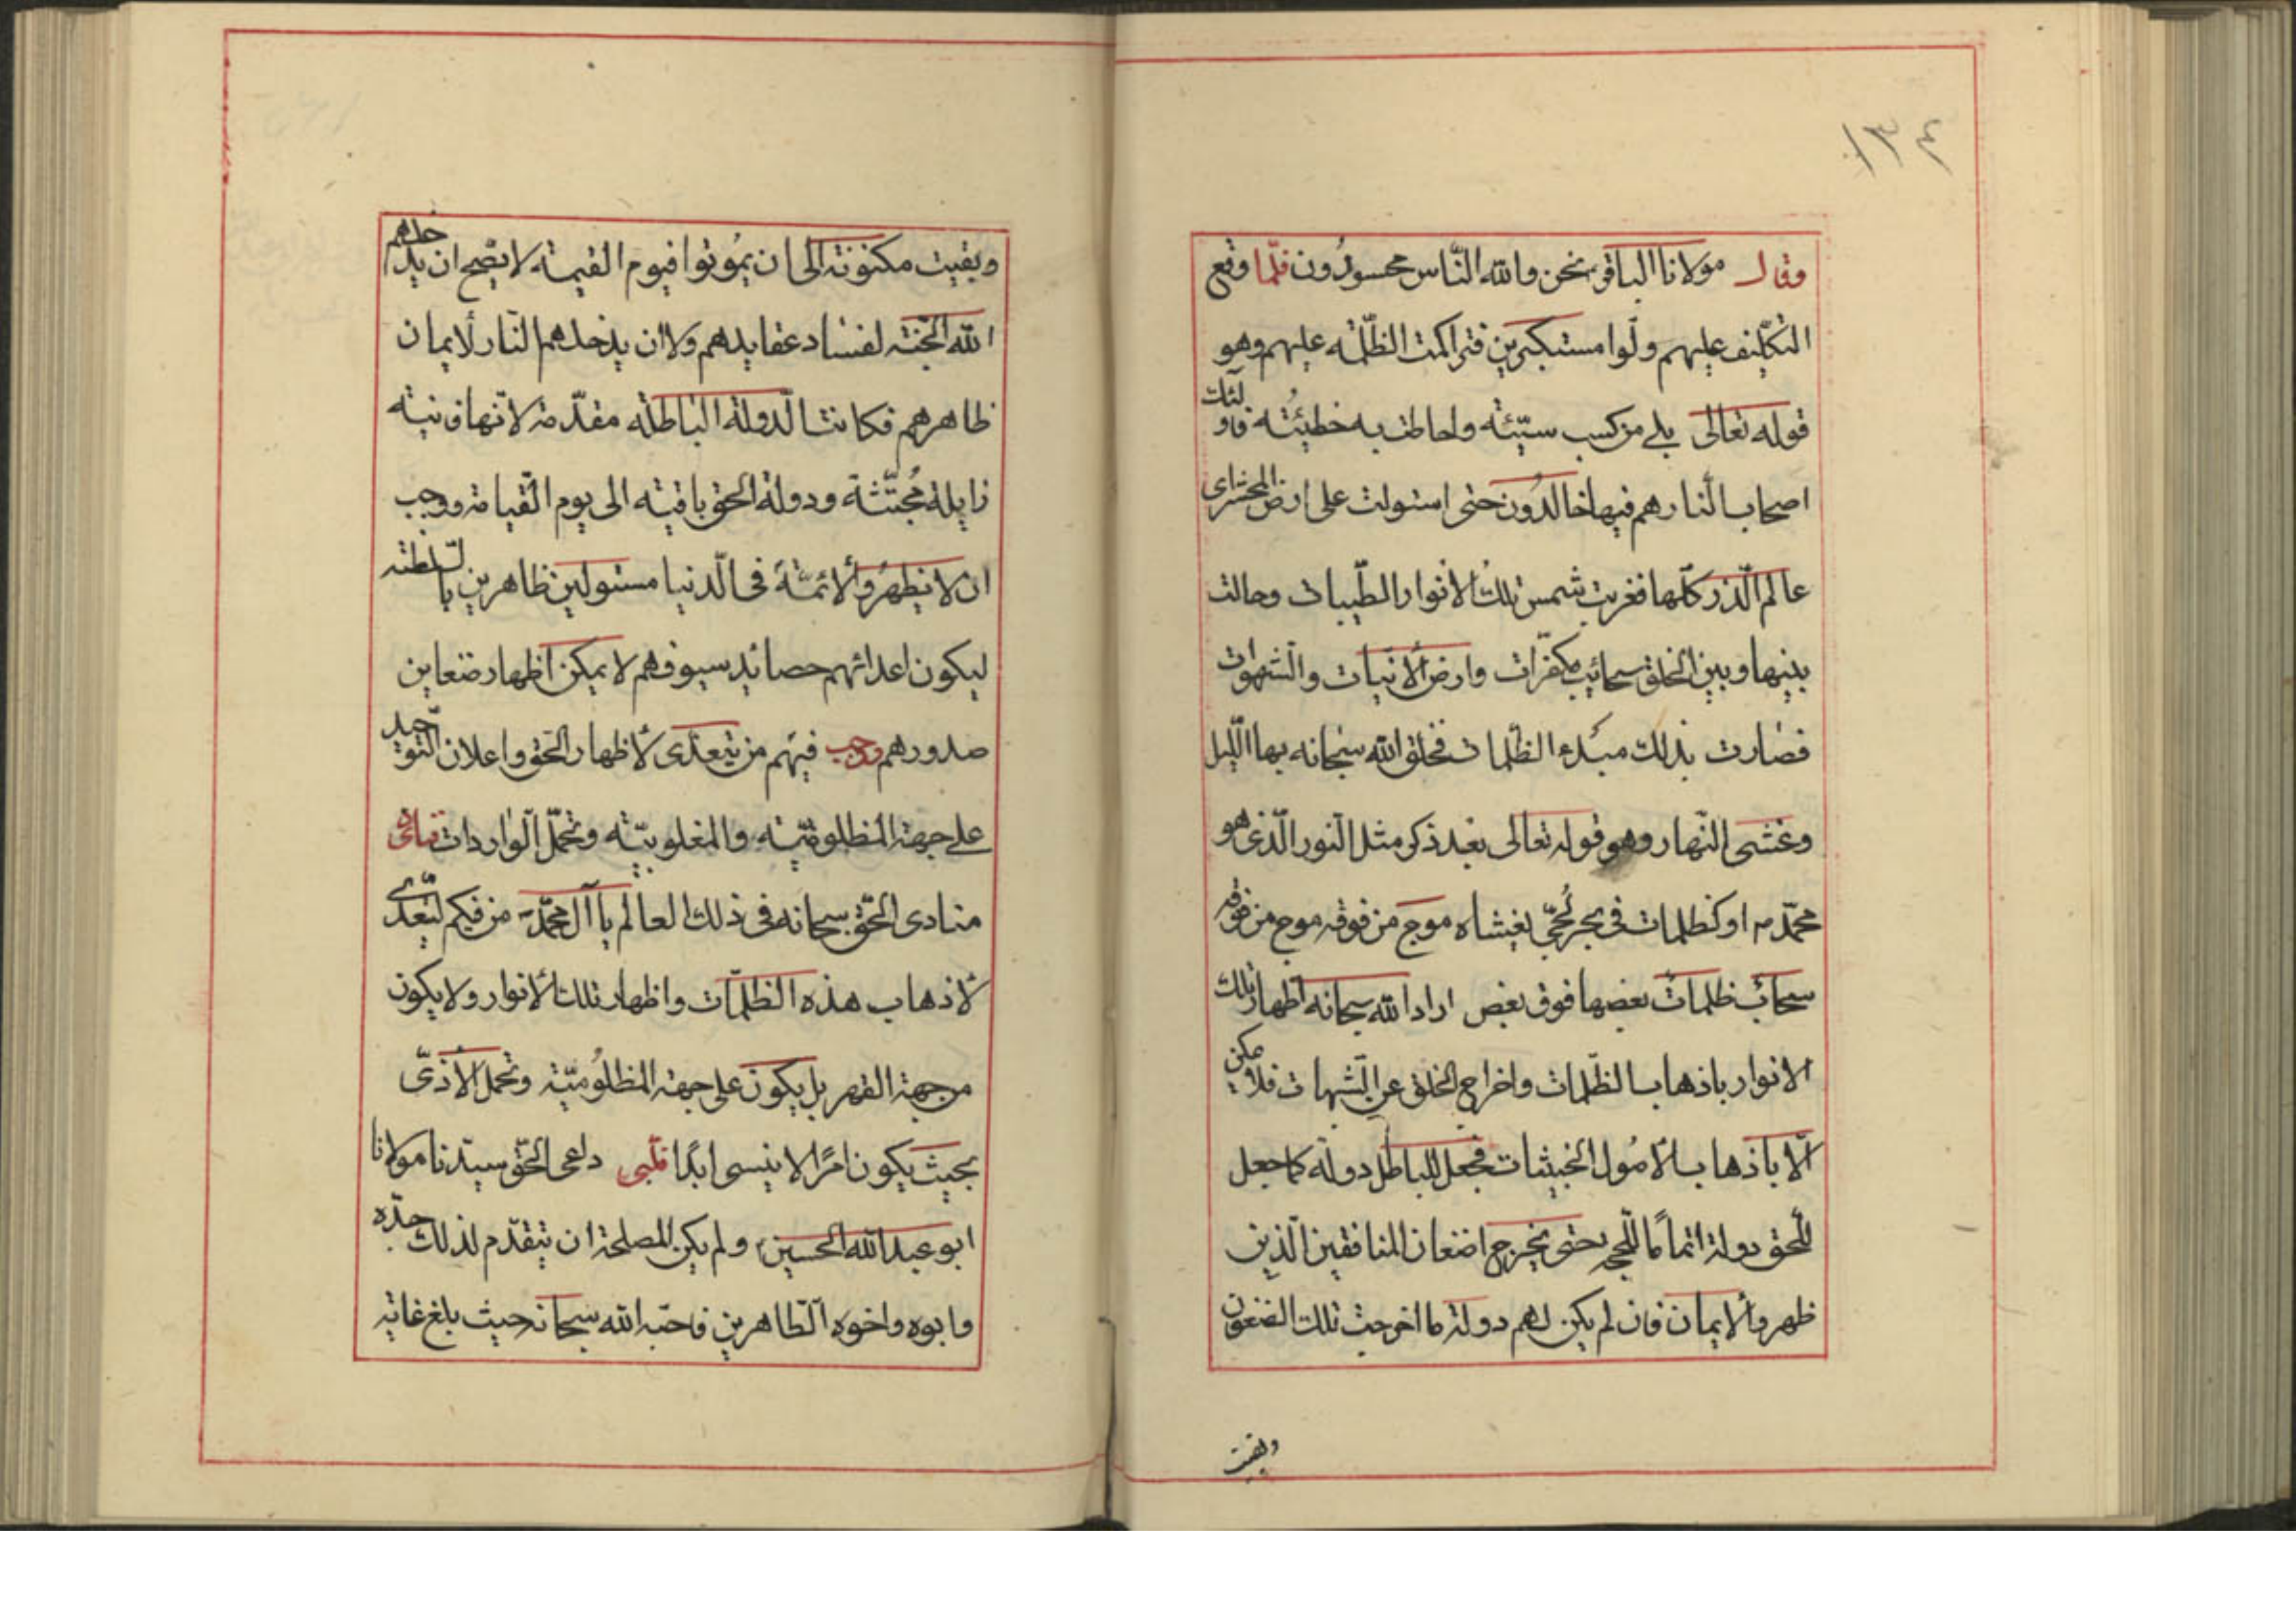 ١٣٤
وقال مولانا الباقر نحن والله النّاس محسودُون فلمّا وقع
التكليف عليهم ولّوا مستكبرين فتراكمت الظّلمة عليهم وهو
قوله تعالى بلى من كسب سيّئة واحاطت به خطيئتُه فاولئك
اصحاب النّار هم فيها خالدُون حتى استولت على ارض المحشر اى
عالم الّذر كلّها فغربت شمس تلك الانوار الطّيبات وحالت
بينها وبين الخلق سحائب مكفرّات وارض الأنيّات والشهوات
فصارت بذلك مبدء الظلمات فخلق الله سبحانه بها اللّيل
وغشى النّهار وهو قوله تعالى بعد ذكر مثل النور الّذى هو
محمّد ص او كظلمات فى بحر لُجّي يغشاه موج من فوقه موج من فوقه
سحاب ظلماتٌ بعضها فوق بعض اراد الله سبحانه اظهار تلك
الانوار باذهاب الظّلمات واخراج الخلق عن الشّبهات فلا يمكن
الّا باذهاب الأمُول الخبيثات فجعل للباطل دولة كما جعل
للحق دولة اتمامًا للحجة حتى يخرج اضغان المنافقين الّذين
ظهروا الايمان فان لم يكن لهم دولة ما اخرجت تلك الضغون
وبقيت
وبقيت مكنونة الى ان يموُتوا فيوم القيمة لا يصّح ان يدخلهم
الله الجنّة لفساد عقايدهم ولا ان يدخلهم النّار لأيمان
ظاهرهم فكانت الّدولة الباطلة مقدّمة لانّها فانية
زايلة مُجتّثة ودولة الحق باقية الى يوم القيامة ووجب
ان لا يظهرُوا الأئمّة فى الّدنيا مستولين ظاهرين بالسّلطنه
ليكون اعدائهم حصائد سيوفهم لا يمكن اظهار ضغاين
صدورهم وجب فيهم من يتعدّى لأظهار الحق واعلان التوحيد
على جهة المظلومّية والمغلوبيّة وتحمّل الواردات فنادى
منادى الحّق سبحانه فى ذلك العالم يا آل محمّد ص من فيكم ليتعدّى
لأذهاب هذه الظلمّات واظهار تلك الأنوار ولا يكون
من جهة القهر بل يكون على جهة المظلوُميّة وتحمل الأذىّ
بحيث يكون امرًا لا ينسى ابدًا فلّبى داعى الحّق سيّدنا مولانا
ابو عبد الله الحسين ولم يكن المصلحة ان يتقدّم لذلك جدّه
وابوه واخوه الّطاهرين فاحبّه الله سبحانه حيث بلغ غاية